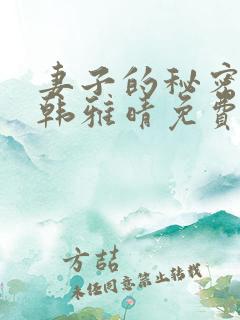 妻子的秘密
韩雅晴免费
方喆
未经同意禁止转载